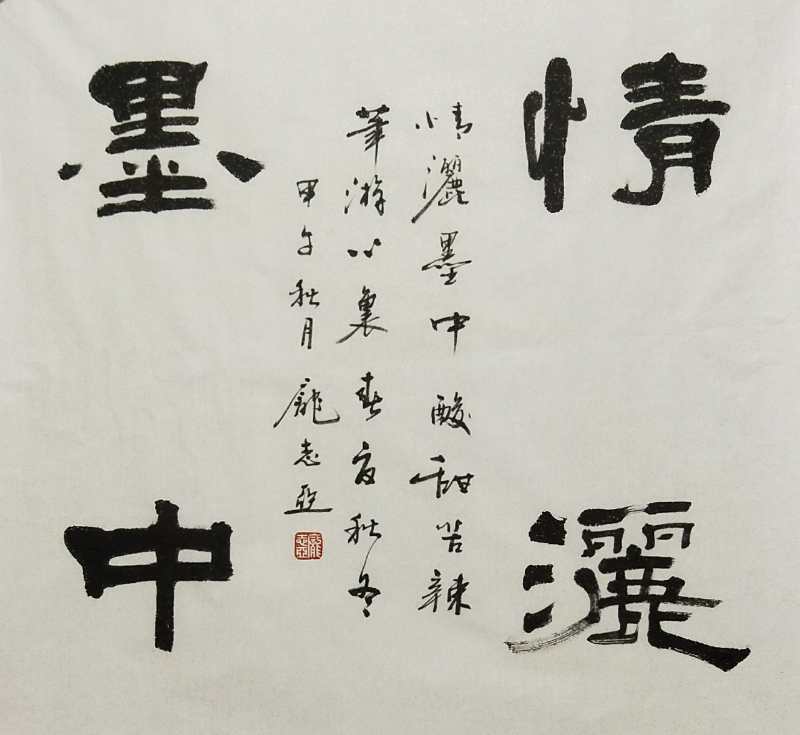 情灑
墨中
情灑墨中酸甜苦辣
筆游心裏春夏秋冬
甲午秋月龐志亞